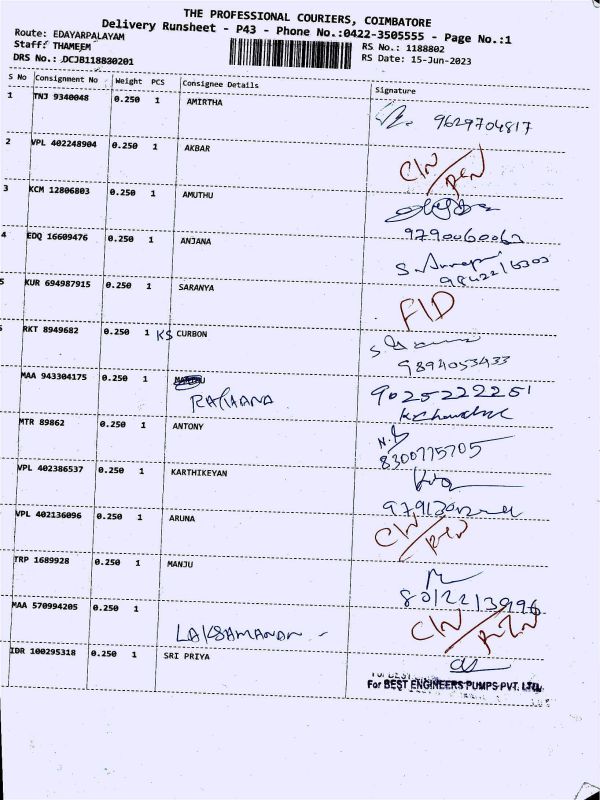 THE PROFESSIONAL COURIERS, COIMBATORE
Delivery Runsheet - P43 - Phone No.:0422-3505555 - Page No.:1
Route: EDAYARPALAYAM
Staff: THAMEEM RS No.: 1188802
DRS No.: DCJB118830201 RS Date: 15-Jun-2023
S No Consignment No Weight PCS Consignee Details Signature
1 TNJ 9340048 0.250 1 AMIRTHA
9629704817
2 VPL 402248904 0.250 1 AKBAR
CIN/PEN
3 KCM 12806803 0.250 1 AMUTHU
9790060063
4 EDQ 16609476 0.250 1 ANJANA
5 KUR 694987915 0.250 1 SARANYA
FID
RKT 8949682 0.250 1 KS CURBON
9894053433
MAA 943304175 0.250 1
RACHANA
9025222251
MTR 89862 0.250 1 ANTONY
N.B
8300775705
VPL 402386537 0.250 1 KARTHIKEYAN
VPL 402136096 0.250 1 ARUNA
CIN/PEN
TRP 1689928 0.250 1 MANJU
8012213996
MAA 570994205 0.250 1
LAKSAMANAN -
CIN/PEN
IDR 100295318 0.250 1 SRI PRIYA
For BEST ENGINEERS PUMPS PVT. LTD.